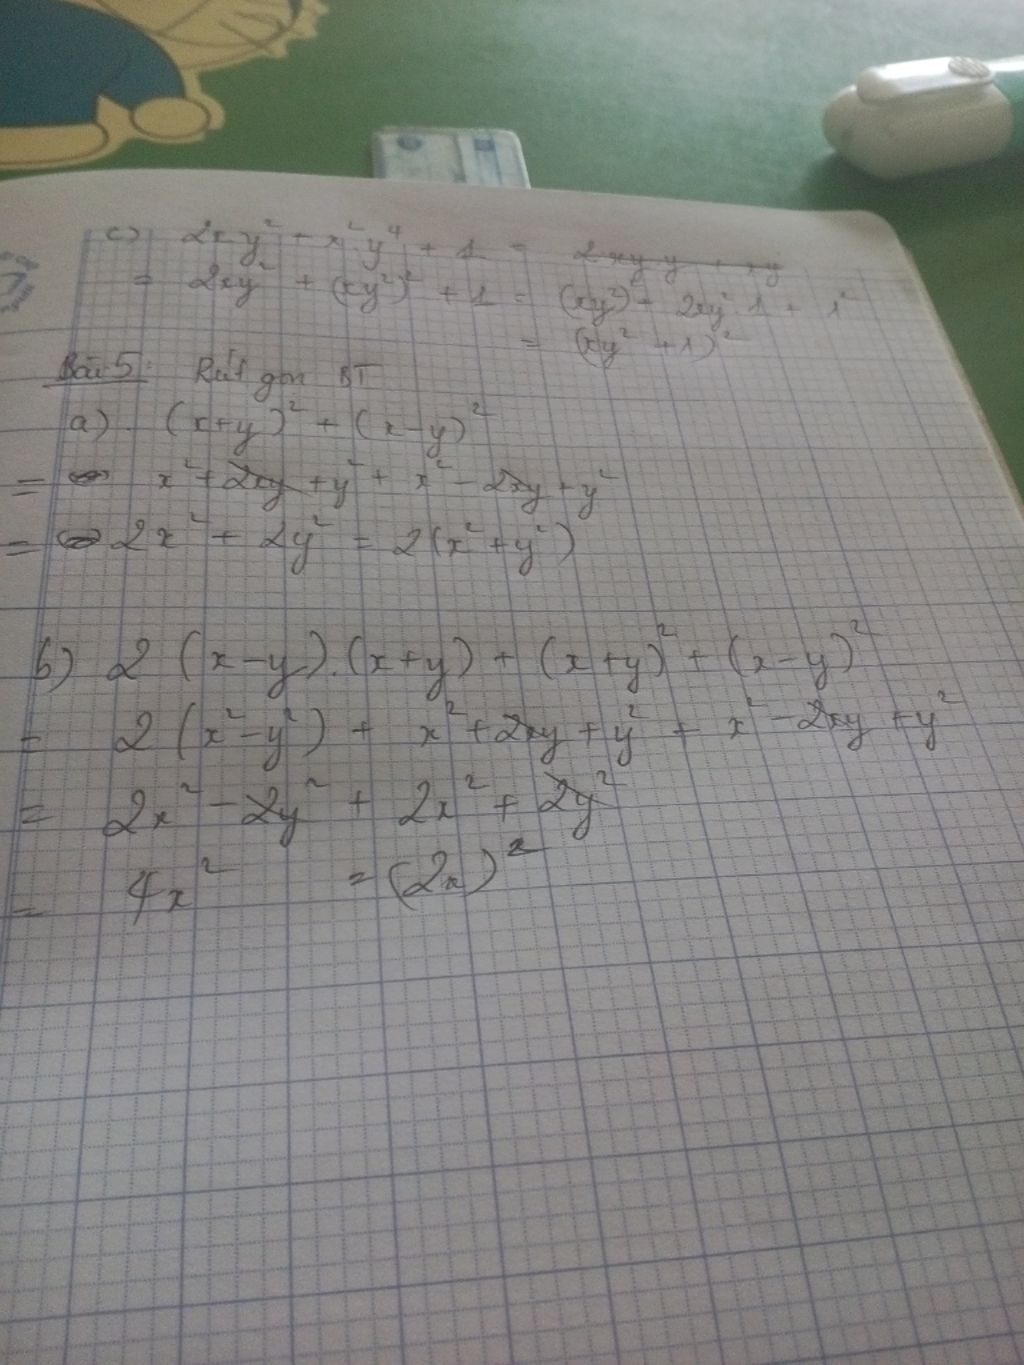 c) 2xy² + x²y⁴ + 1 = 2xy y + xy
= 2xy² + (xy²)² + 1 = (xy²)² + 2xy².1 + 1²
= (xy² + 1)²
Bài 5: Rút gọn BT
a) (x+y)² + (x-y)²
= x² + 2xy + y² + x² - 2xy + y²
= 2x² + 2y² = 2(x² + y²)
b) 2 (x-y).(x+y) + (x+y)² + (x-y)²
= 2(x²-y²) + x² + 2xy + y² + x² - 2xy + y²
= 2x² - 2y² + 2x² + 2y²
= 4x² = (2x)²